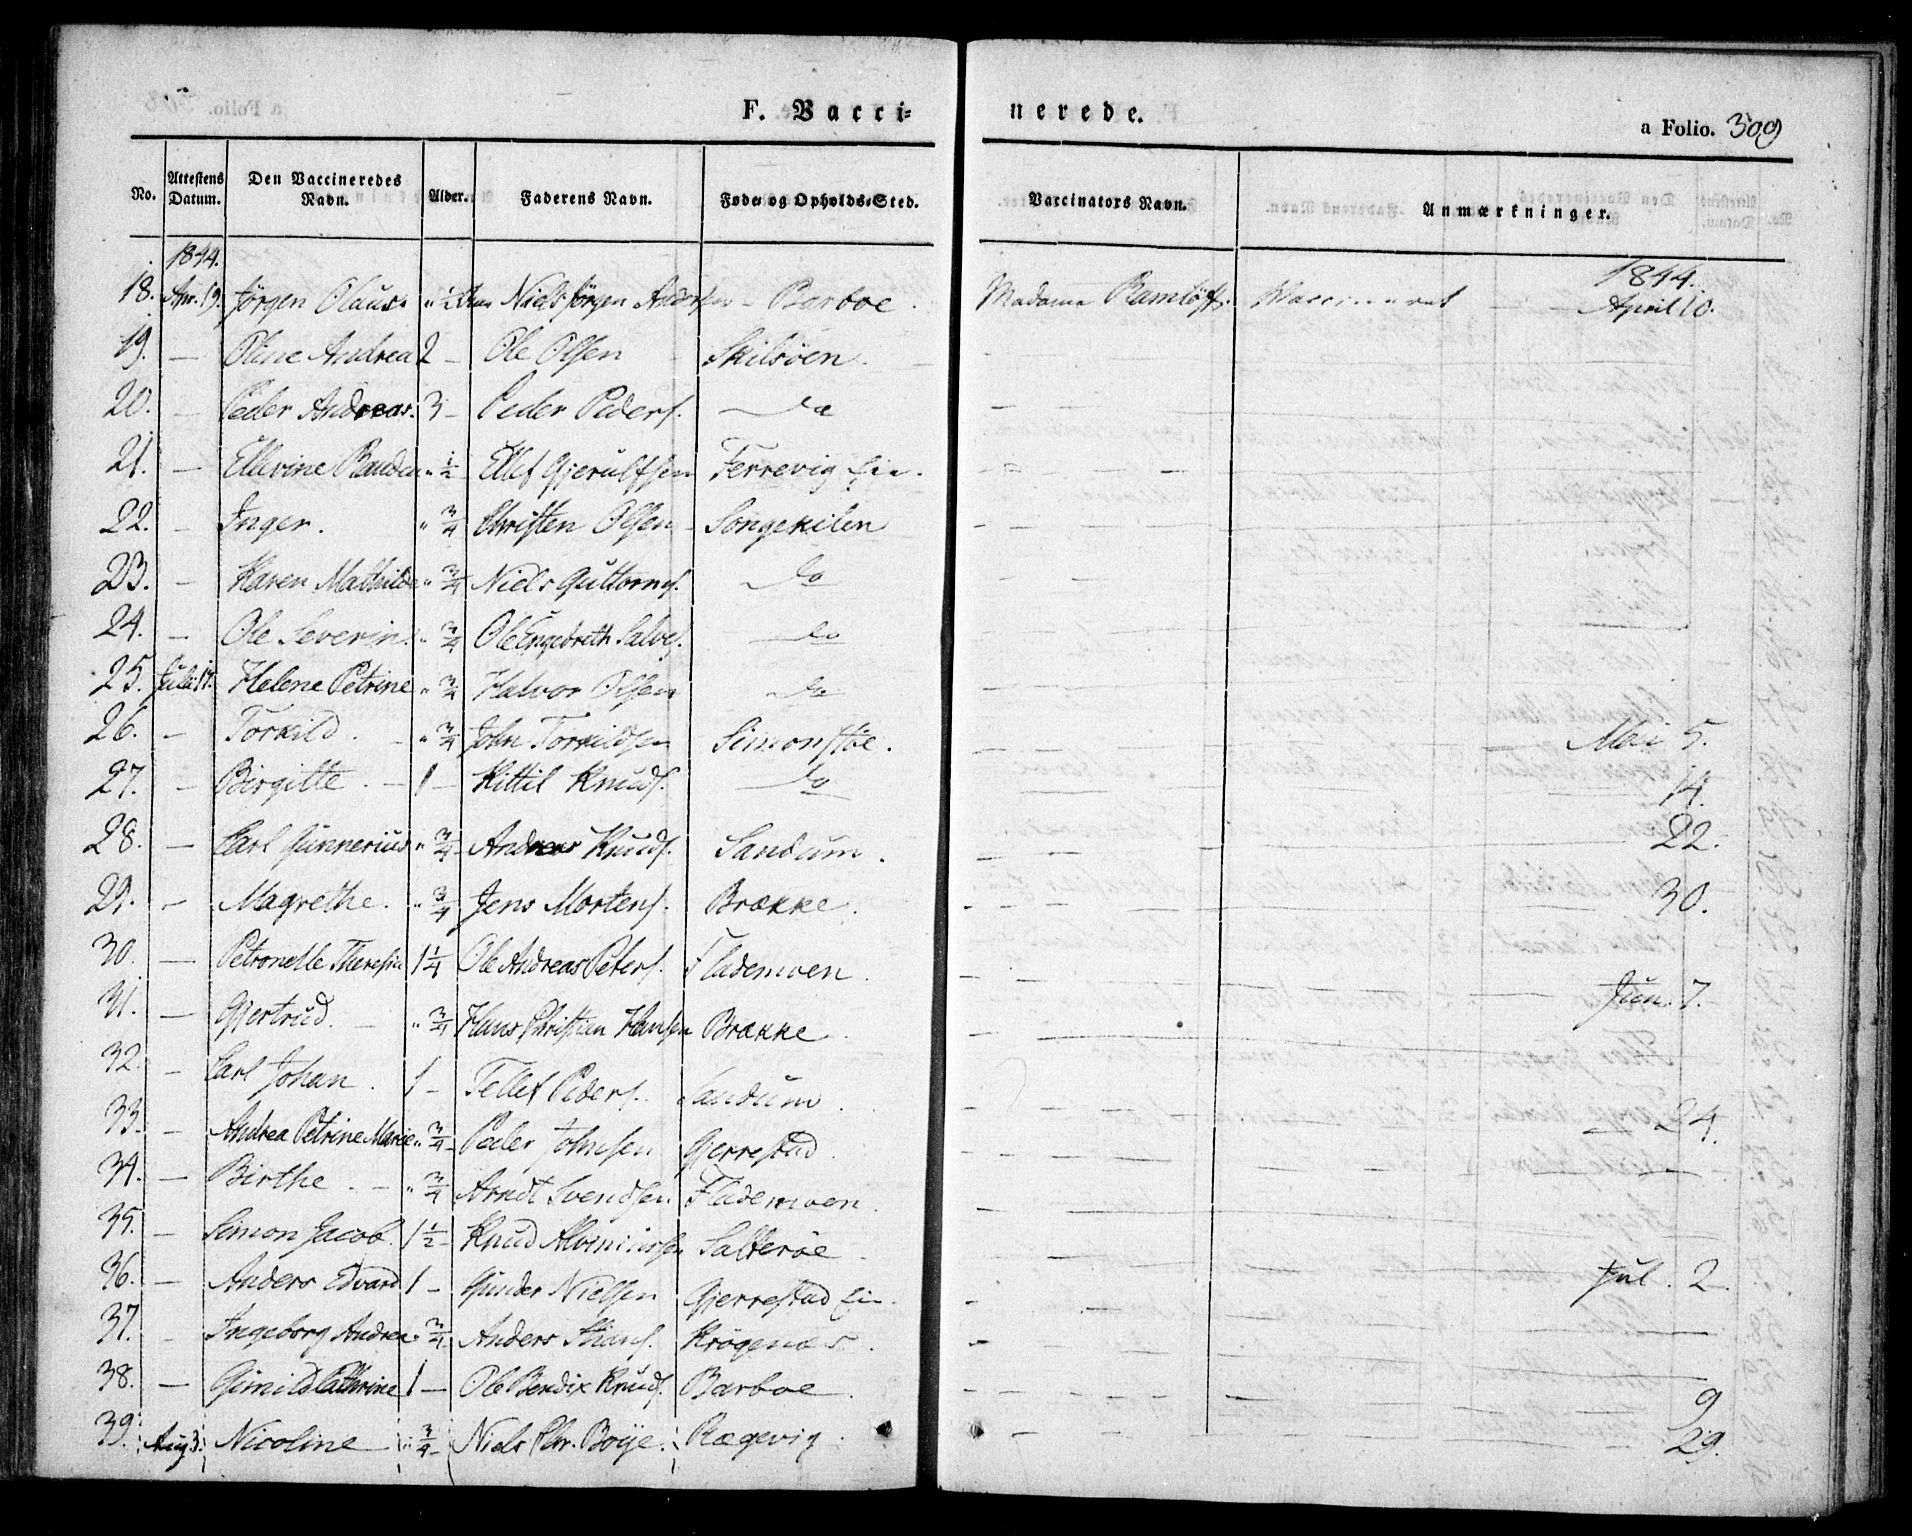 F. Vacci- nerede. a Folio. 309
No. Attestens Datum. Den Vaccineredes Navn. Alder. Faderens Navn. Føde- og Opholds-Sted. Vaccinators Navn. Anmærkninger.
1844. 1844.
18. Apr. 19. Jørgen Olaus " ½ Niels Jørgen Anders - Barboe. Madame Ramløfts. April 10.
19. — Oline Andrea 2 - Ole Olsen Skilsøen.
20. — Peder Andreas. 3 - Peder Peders. do
21. — Ellevine " ½ Ellef Gjerulfsen Ferrevig Eie.
22. - Inger. " ¾ Christen Olsen - Songekilen
23. - Karen Mathilde " ¾ Niels Guttorms. do
24. - Ole Severin. " ¾ Ole Engebreth Salves. do
25. Juli 17. Helene Petrine " ¾ Halvor Olsen do
26. - Torkild. - " ¾ John Torkildsen Simonstøe. Mai 5.
27. - Birgitte. - 1 - Kittil Knuds. do 14.
28. - Carl Gunnerius " ¾ Andreas Knuds. Sandum. 22.
29. - Magrethe. " ¾ Jens Mortens. Brække. 30.
30. — Petronelle Theresia 1¼ Ole Andreas Peters. Flademoen.
31. — Gjertrud. - " ¾ Hans Christian Hansen Brække. Jun. 7.
32. - Carl Johan. 1 - Tellef Peders. Sandum.
33. - Andrea Petrine Marie " ¾ Peder Johnsen Gjerrestad. 24.
34. - Birthe. - " ¾ Arndt Svendsen Flademoen.
35. - Simon Jacob. 1½ Knud Salterøe.
36. — Anders Edvard 1 - Gunder Nielsen Gjerrestad Eie. Jul. 2
37. - Ingeborg Andrea " ¾ Anders Krøgenæs.
38. — Gunild Cathrine 1 — Ole Bendix Knuds. Barboe. 9
39. Aug 3. Nicoline " ¾ Niels Chr. Boye. Rægevig. 29.